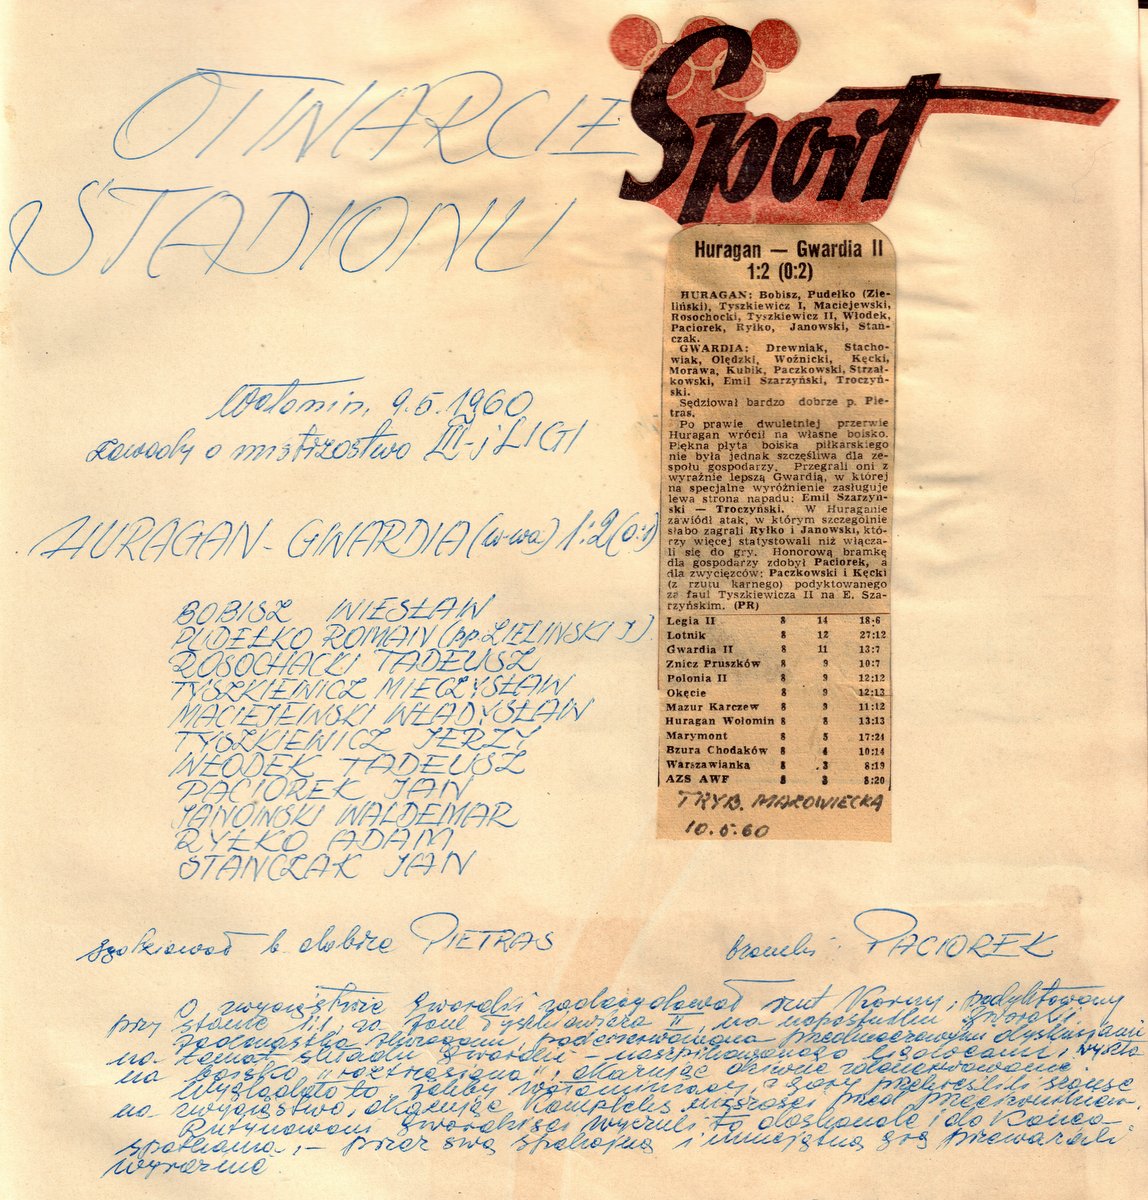 OTWARCIE
STADIONU
Sport
Wołomin, 9.5.1960
zawody o mistrzostwo III-j LIGI
HURAGAN - GWARDIA (W-wa) 1:2 (0:1)
BOBISZ WIESŁAW
PUDEŁKO ROMAN (pp. ZIELINSKI J).
ROSOCHACKI TADEUSZ
TYSZKIEWICZ MIECZYSŁAW
MACIEJEWSKI WŁADYSŁAW
TYSZKIEWICZ JERZY
WŁODEK TADEUSZ
PACIOREK JAN
JANOWSKI WALDEMAR
RYŁKO ADAM
STANCZAK JAN
Huragan — Gwardia II
1:2 (0:2)
HURAGAN: Bobisz, Pudełko (Zie-
liński), Tyszkiewicz I, Maciejewski,
Rosochocki, Tyszkiewicz II, Włodek,
Paciorek, Ryłko, Janowski, Stań-
czak.
GWARDIA: Drewniak, Stacho-
wiak, Olędzki, Woźnicki, Kęcki,
Morawa, Kubik, Paczkowski, Strzał-
kowski, Emil Szarzyński, Troczyń-
ski.
Sędziował bardzo dobrze p. Pie-
tras.
Po prawie dwuletniej przerwie
Huragan wrócił na własne boisko.
Piękna płyta boiska piłkarskiego
nie była jednak szczęśliwa dla ze-
społu gospodarzy. Przegrali oni z
wyraźnie lepszą Gwardią, w której
na specjalne wyróżnienie zasługuje
lewa strona napadu: Emil Szarzyn-
ski — Troczyński. W Huraganie
zawiódł atak, w którym szczególnie
słabo zagrali Ryłko i Janowski, któ-
rzy więcej statystowali niż włącza-
li się do gry. Honorową bramkę
dla gospodarzy zdobył Paciorek, a
dla zwycięzców: Paczkowski i Kęcki
(z rzutu karnego) podyktowanego
za faul Tyszkiewicza II na E. Sza-
rzyńskim. (PR)
Legia II 8 14 18-6
Lotnik 8 12 27:12
Gwardia II 8 11 13:7
Znicz Pruszków 8 9 10:7
Polonia II 8 9 12:12
Okęcie 8 9 12:13
Mazur Karczew 8 9 11:12
Huragan Wołomin 8 8 13:13
Marymont 8 5 17:24
Bzura Chodaków 8 4 10:14
Warszawianka 8 3 8:19
AZS AWF 8 3 8:20
TRYB. MAZOWIECKA
10.5.60
Sędziował b. dobrze PIETRAS
bramki: PACIOREK
O zwycięstwie Gwardii zadecydował rzut karny, podyktowany
przy stanie 1:1, za faul Tyszkiewicza II, na napastniku Gwardii.
Jedenastka Huraganu, podenerwowana przedmeczowymi dyskusjami
na temat składu Gwardii - naszpikowanego ligowcami, wyszła
na boisko "roztrzęsiona", okazując dziwne zdenerwowanie.
Wyglądało to, jakby wołominiacy, z góry przekreślili szanse
na zwycięstwo, okazując kompleks niższości przed przeciwnikiem.
Rutynowani Gwardziści wyczuli to doskonale i do końca
spotkania, - przez swą spokojną i umiejętną grę przeważali
wyraźnie.